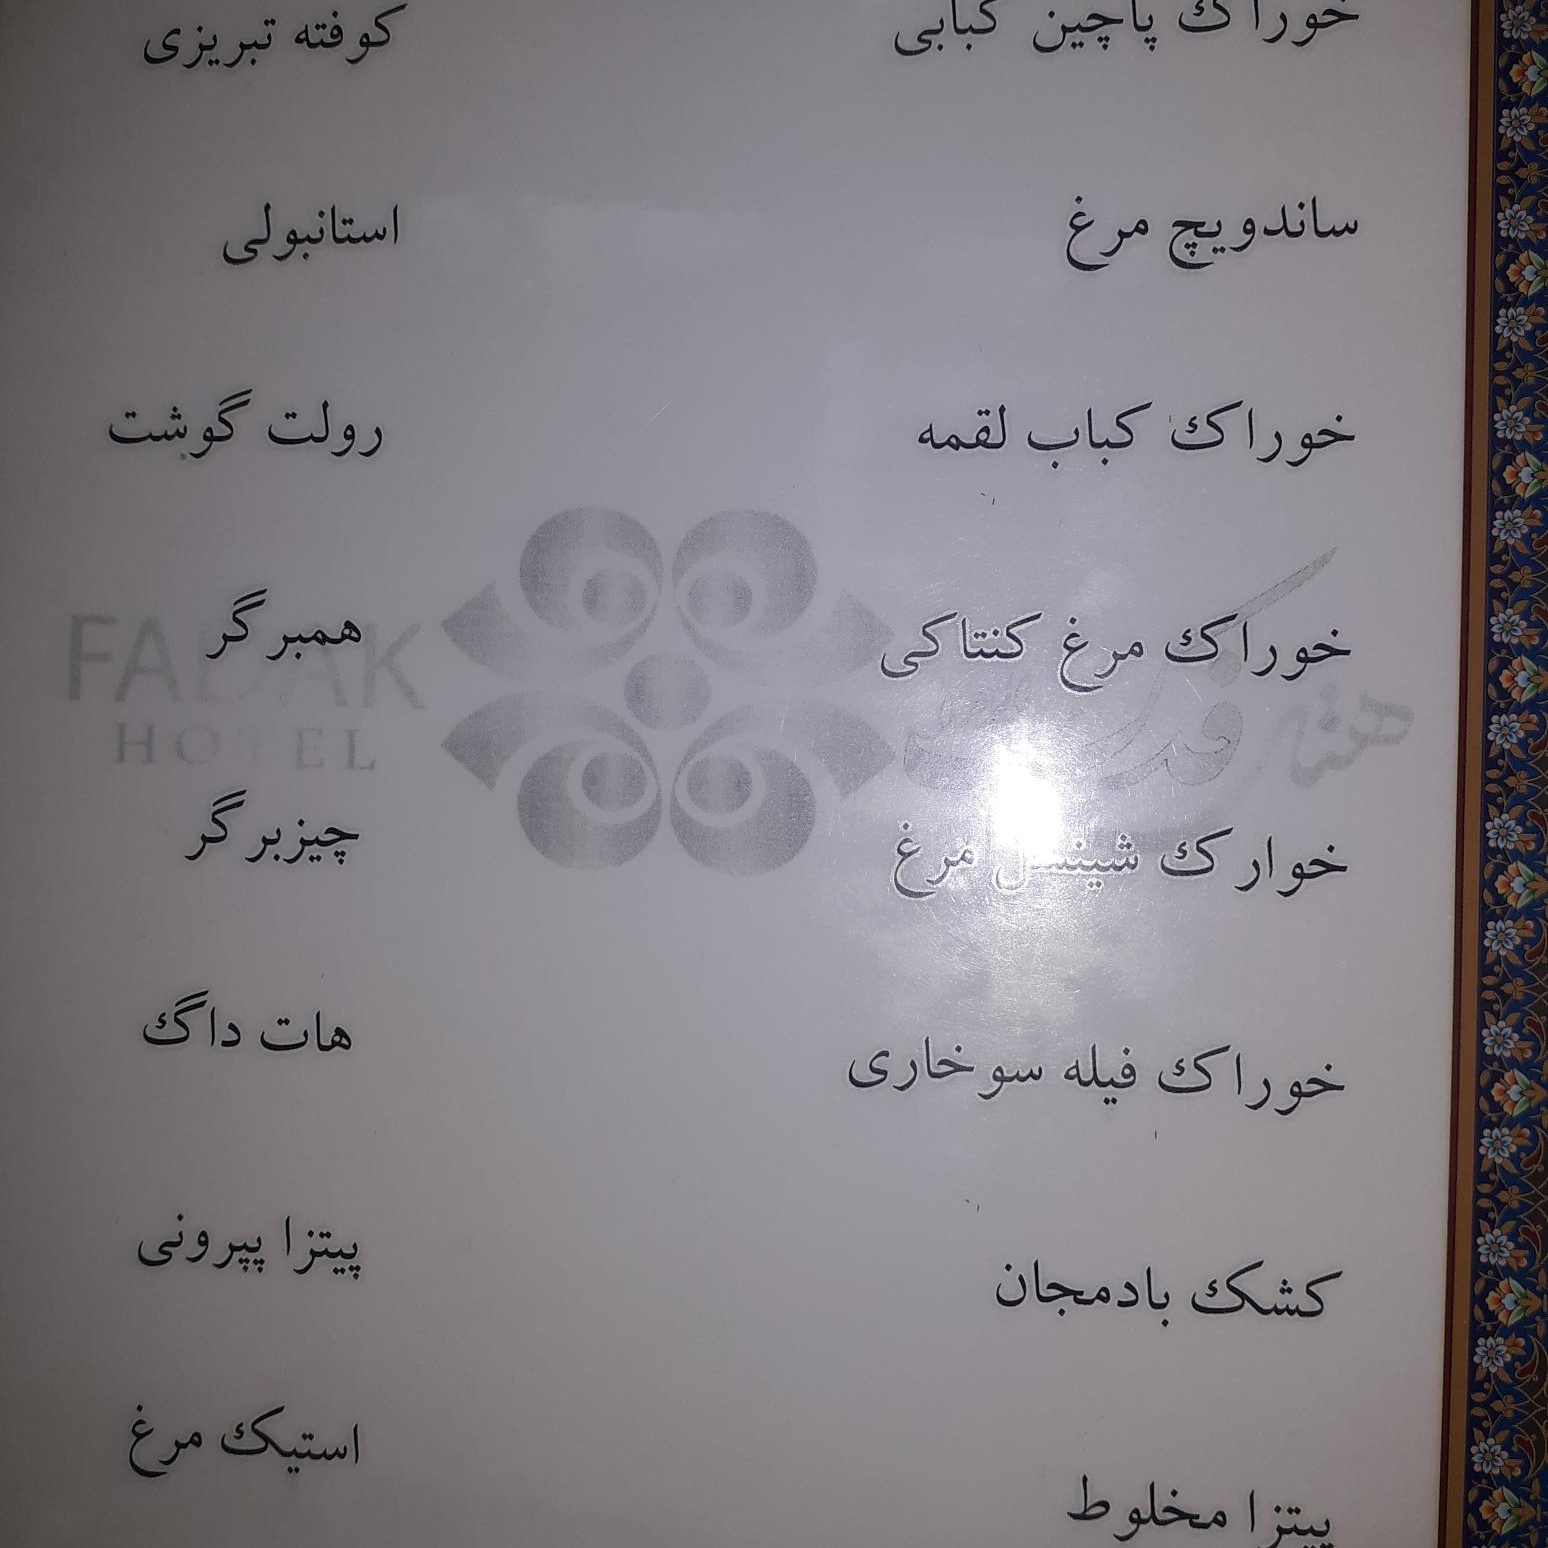 خوراک پاچین کبابی
ساندویچ مرغ
خوراک کباب لقمه
خوراک مرغ کنتاکی
خوارک شینسل مرغ
خوراک فیله سوخاری
کشک بادمجان
پیتزا مخلوط
کوفته تبریزی
استانبولی
رولت گوشت
همبرگر
چیزبرگر
هات داگ
پیتزا پپرونی
استیک مرغ
FADAK
HOTEL
هتل فدک